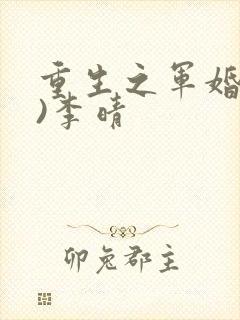 重生之军婚
)李晴
卯兔郡主